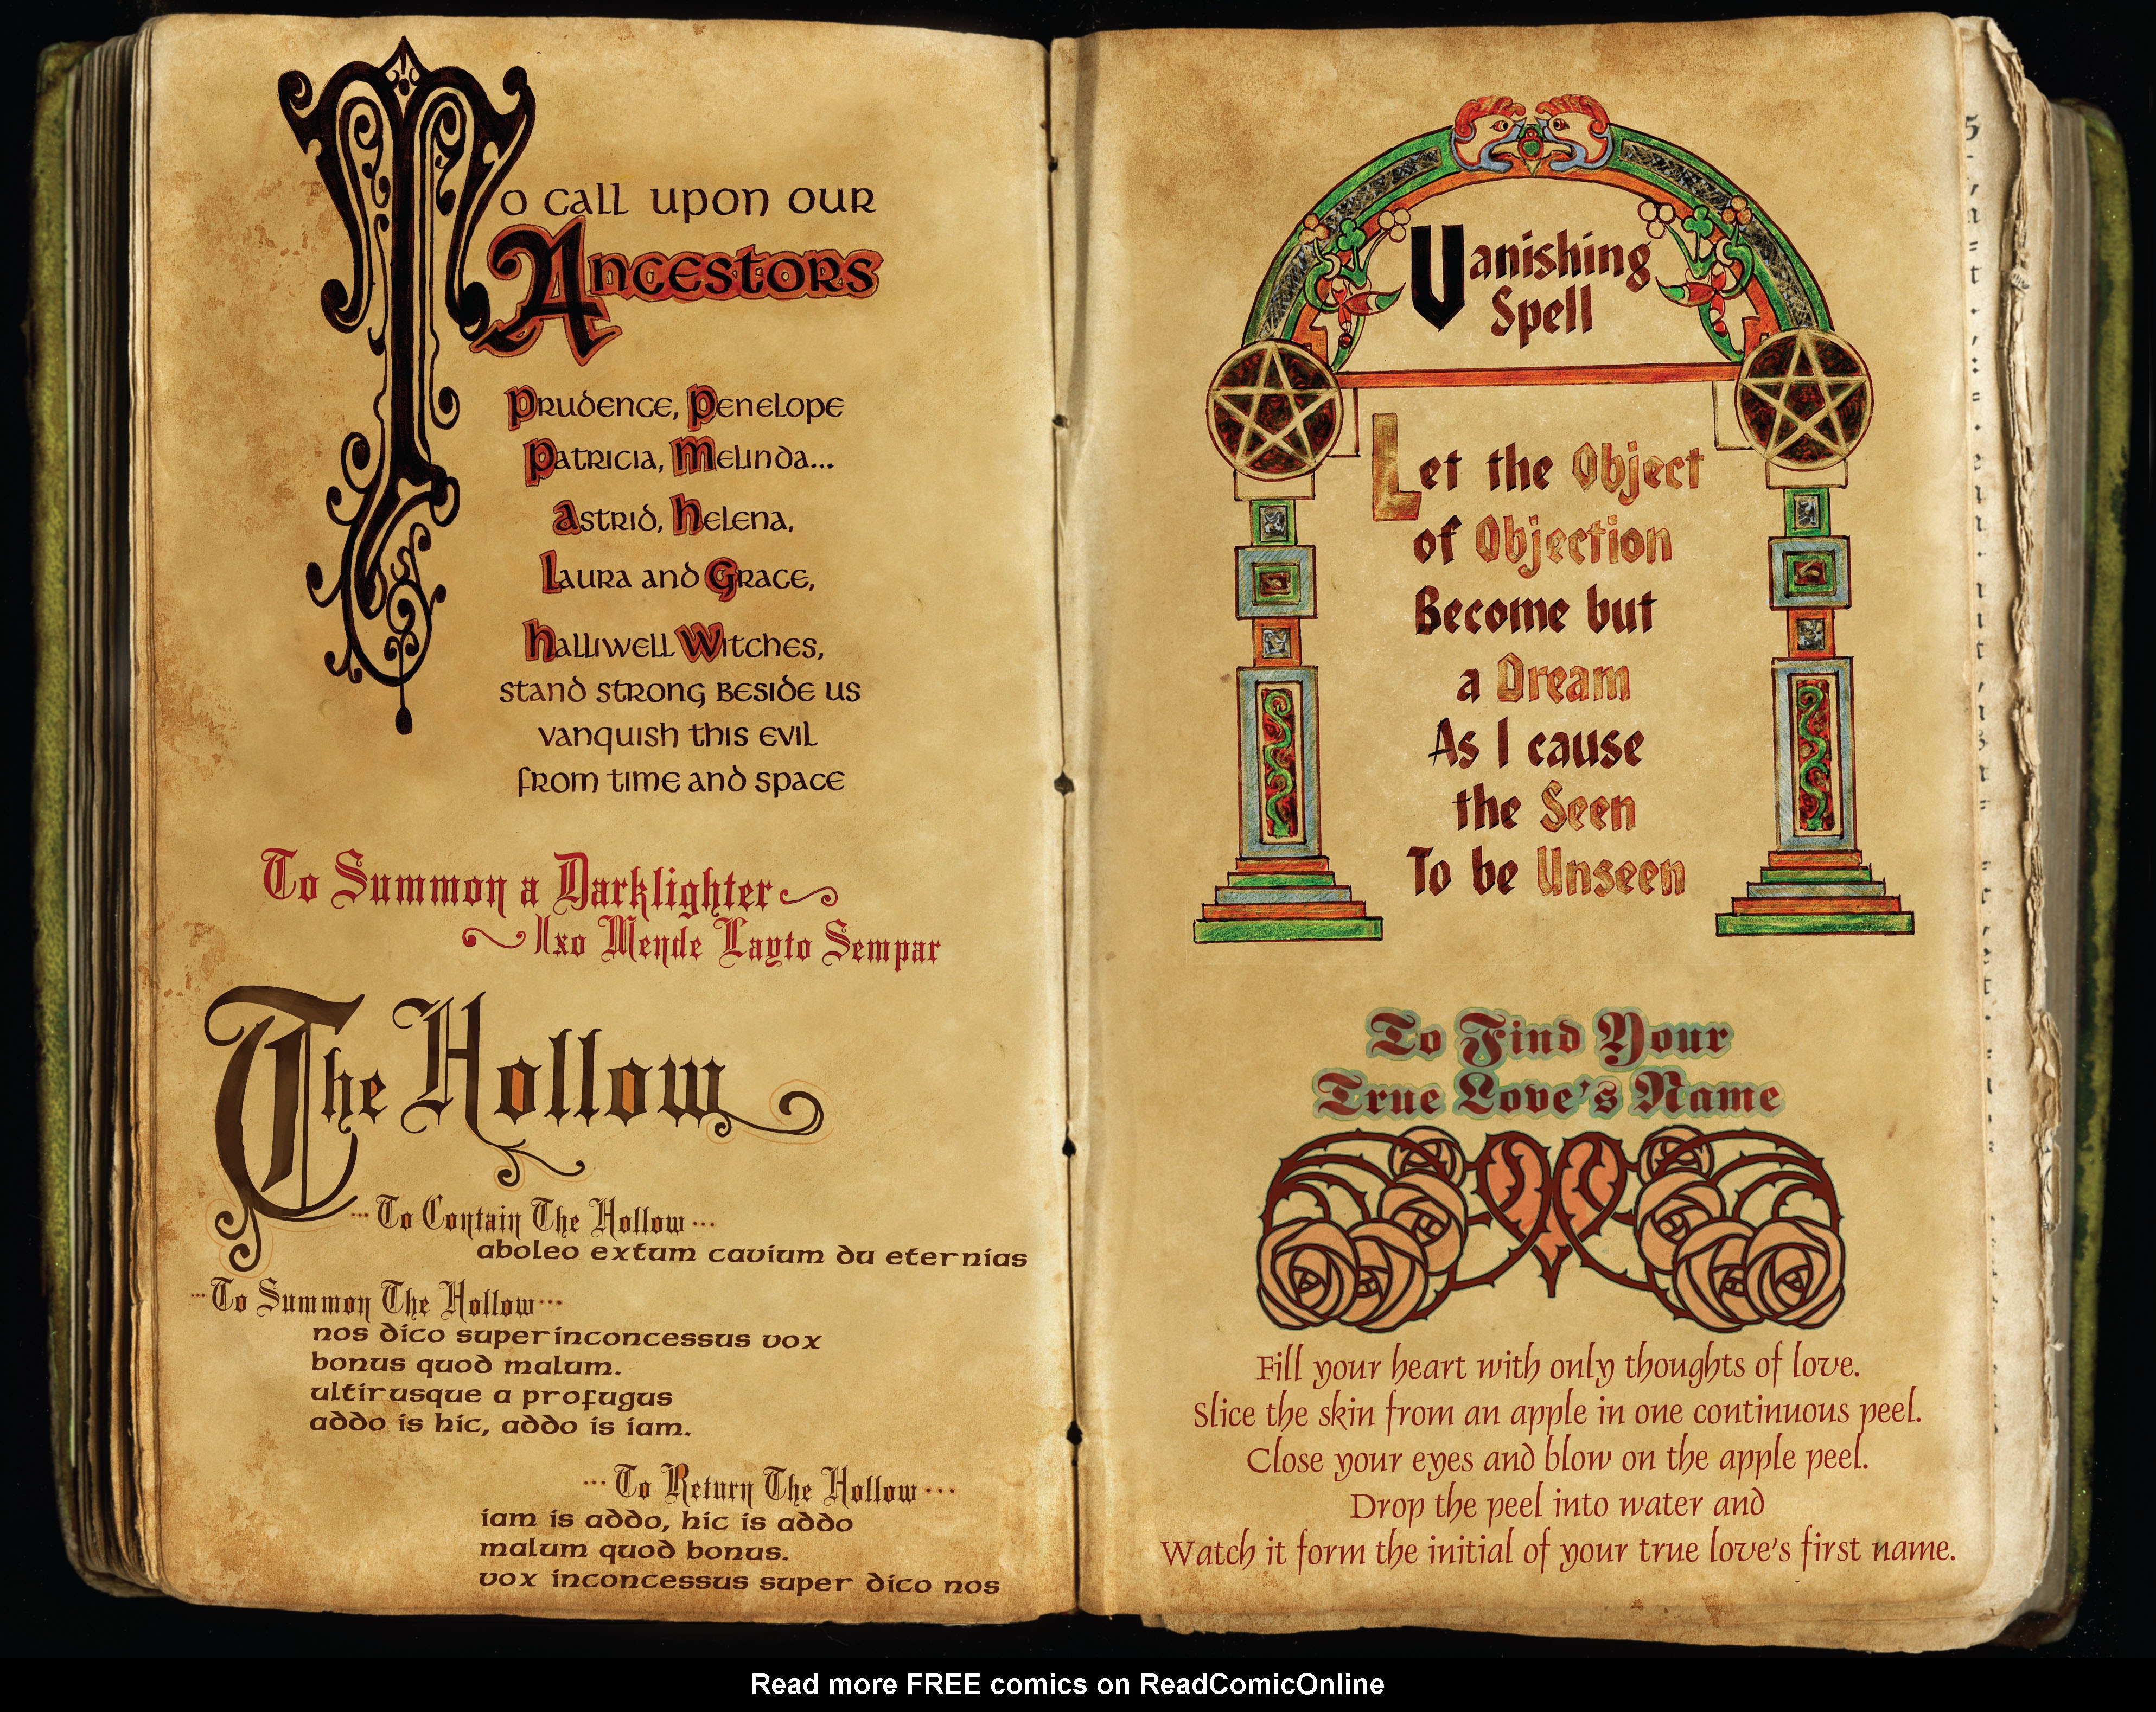 To call upon our
Ancestors
Prudence, Penelope
Patricia, Melinda...
Astrid, Helena,
Laura and Grace,
Halliwell Witches,
stand strong beside us
vanquish this evil
from time and space
To Summon a Darklighter
Ixo Mende Layto Sempar
The Hollow
...To Contain The Hollow...
aboleo extum cavium du eternias
...To Summon The Hollow...
nos dico superinconcessus vox
bonus quod malum.
ultirusque a profugus
addo is hic, addo is iam.
...To Return The Hollow...
iam is addo, hic is addo
malum quod bonus.
vox inconcessus super dico nos
Vanishing
Spell
Let the Object
of Objection
Become but
a Dream
As I cause
the Seen
To be Unseen
To Find Your
True Love's Name
Fill your heart with only thoughts of love.
Slice the skin from an apple in one continuous peel.
Close your eyes and blow on the apple peel.
Drop the peel into water and
Watch it form the initial of your true love's first name.
Read more FREE comics on ReadComicOnline